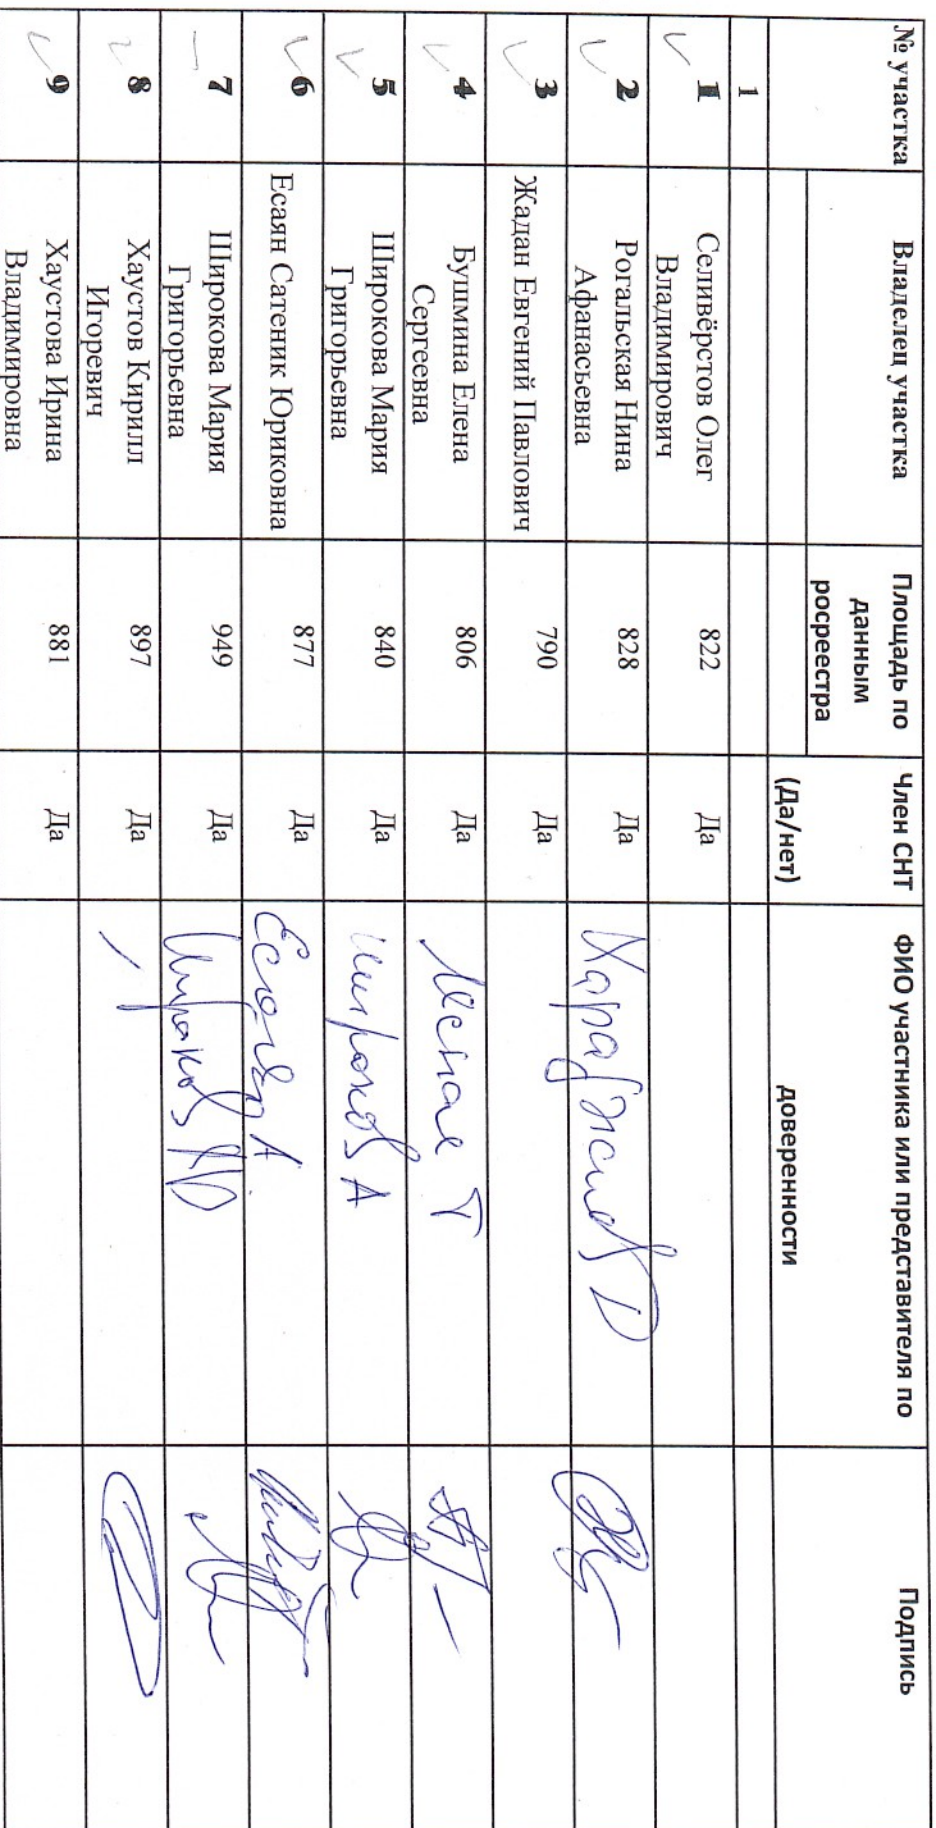 № участка Владелец участка Площадь по данным росреестра Член СНТ (Да/нет) ФИО участника или представителя по доверенности Подпись
1
1 Селивёрстов Олег Владимирович 822 Да
2 Рогальская Нина Афанасьевна 828 Да
3 Жадан Евгений Павлович 790 Да
4 Бушмина Елена Сергеевна 806 Да
5 Широкова Мария Григорьевна 840 Да Широков А
6 Есаян Сатеник Юриковна 877 Да Есаян А
7 Широкова Мария Григорьевна 949 Да Широков
8 Хаустов Кирилл Игоревич 897 Да
9 Хаустова Ирина Владимировна 881 Да